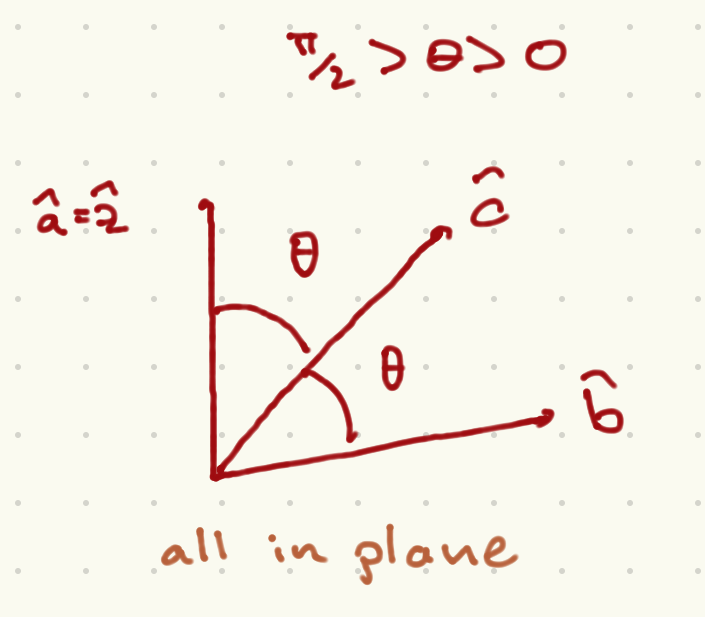 π/2 > θ > 0
â = ẑ
ĉ
θ
θ
b̂
all in plane